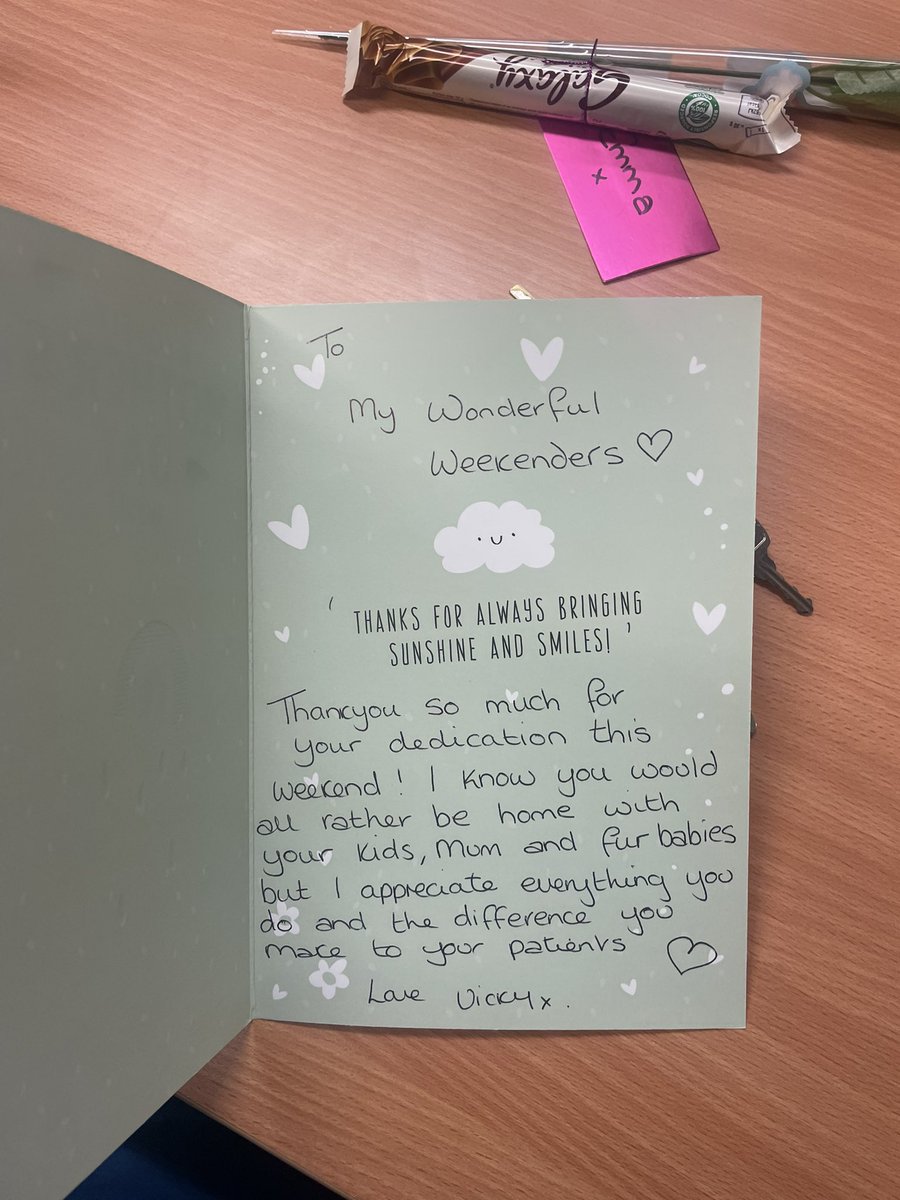 Galaxy
Emma
x
To
My Wonderful
Weekenders
' THANKS FOR ALWAYS BRINGING
SUNSHINE AND SMILES! '
Thankyou so much for
your dedication this
weekend! I know you would
all rather be home with
your kids, Mum and fur babies
but I appreciate everything you
do and the difference you
make to your patients
Love Vicky x.